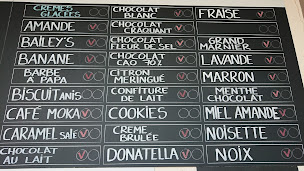 CRÈMES
GLACÉES
AMANDE
BAILEY'S
BANANE
BARBE
A PAPA
BISCUIT anis
CAFÉ MOKA
CARAMEL salé
CHOCOLAT
AU LAIT
CHOCOLAT
BLANC
CHOCOLAT
CRAQUANT
CHOCOLAT
FLEUR DE SEL
CHOCOLAT
CITRON
MERINGUÉ
CONFITURE
DE LAIT
COOKIES
CREME
BRULÉE
DONATELLA
FRAISE
GRAND
MARNIER
LAVANDE
MARRON
MENTHE
CHOCOLAT
MIEL AMANDE
NOISETTE
NOIX